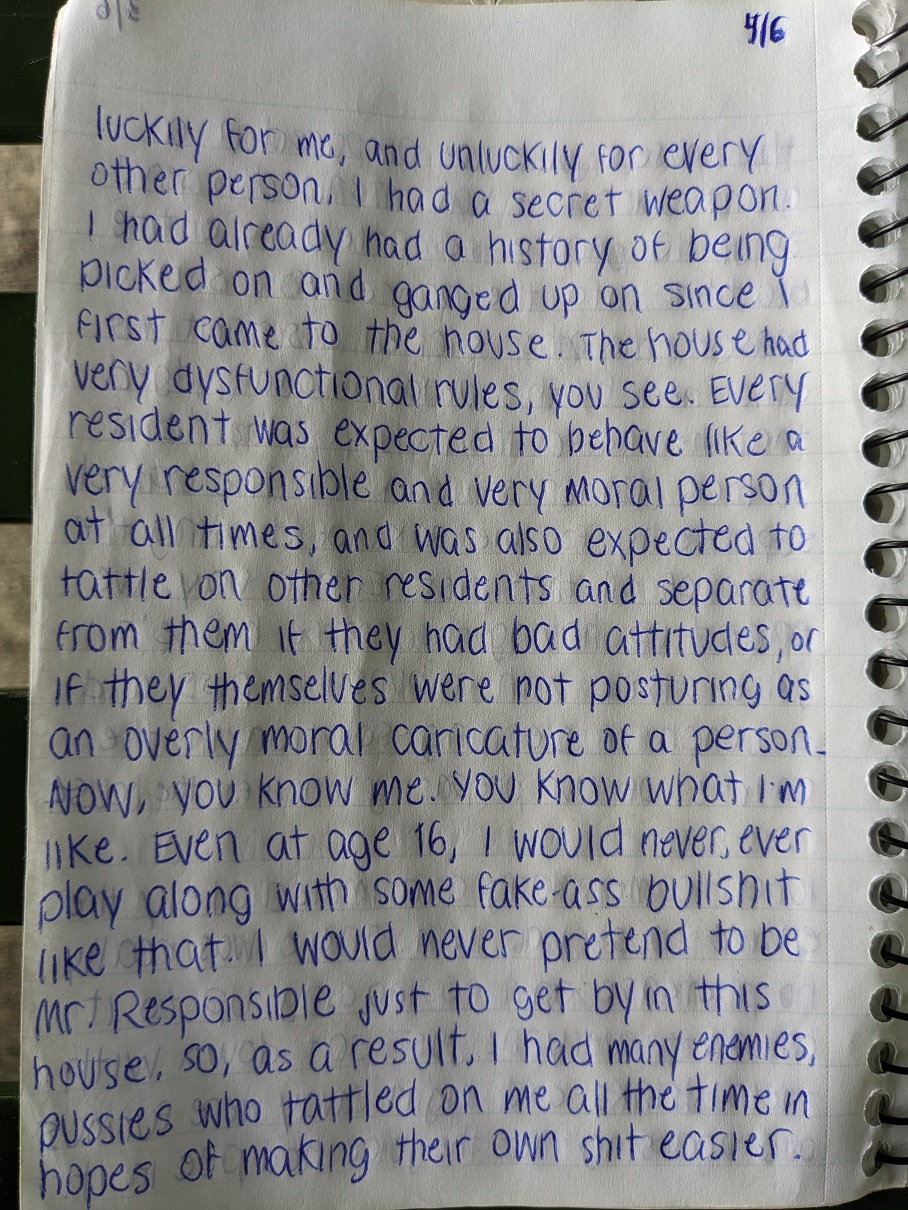 4/6
luckily for me, and unluckily for every
other person, I had a secret weapon.
I had already had a history of being
picked on and ganged up on since I
first came to the house. The house had
very dysfunctional rules, you see. Every
resident was expected to behave like a
very responsible and very moral person
at all times, and was also expected to
tattle on other residents and separate
from them if they had bad attitudes, or
if they themselves were not posturing as
an overly moral caricature of a person.
Now, you know me. You know what I'm
like. Even at age 16, I would never, ever
play along with some fake-ass bullshit
like that. I would never pretend to be
Mr. Responsible just to get by in this
house. So, as a result, I had many enemies,
pussies who tattled on me all the time in
hopes of making their own shit easier.